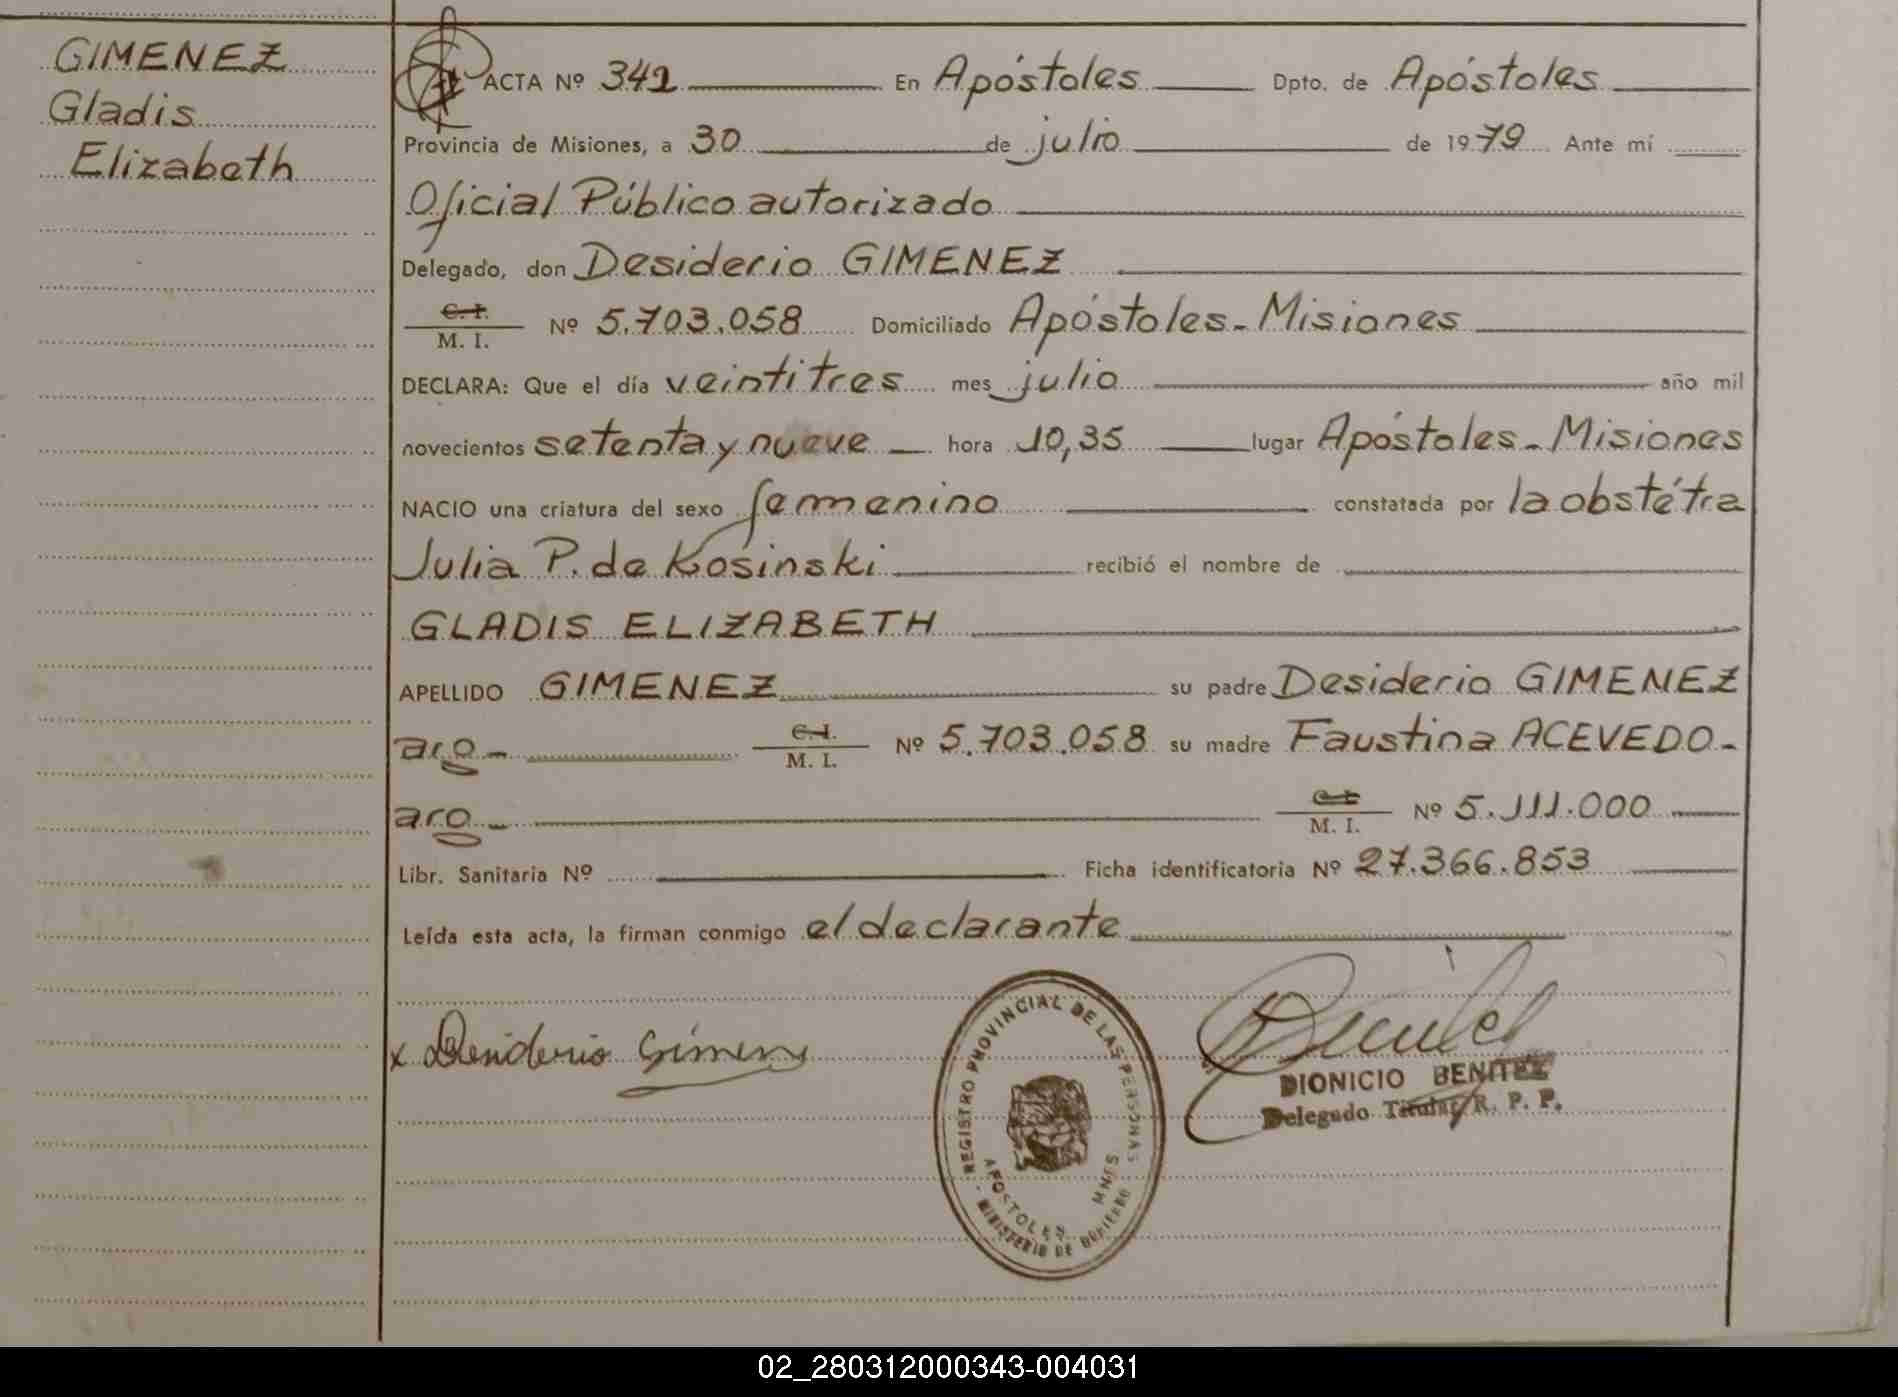 GIMENEZ
Gladis
Elizabeth
ACTA Nº 342 En Apóstoles Dpto. de Apóstoles
Provincia de Misiones, a 30 de julio de 1979 Ante mí
Oficial Público autorizado
Delegado, don Desiderio GIMENEZ
C. I.
M. I. Nº 5.703.058 Domiciliado Apóstoles - Misiones
DECLARA: Que el día veintitres mes julio año mil
novecientos setenta y nueve hora 10,35 lugar Apóstoles - Misiones
NACIO una criatura del sexo femenino constatada por la obstétra
Julia P. de Kosinski recibió el nombre de
GLADIS ELIZABETH
APELLIDO GIMENEZ su padre Desiderio GIMENEZ
aro - C. I.
M. I. Nº 5.703.058 su madre Faustina ACEVEDO -
aro - C. I.
M. I. Nº 5.111.000
Libr. Sanitaria Nº Ficha identificatoria Nº 27.366.853
Leída esta acta, la firman conmigo el declarante
x Desiderio Gimenez
REGISTRO PROVINCIAL DE LAS PERSONAS
APOSTOLES MNES
MINISTERIO DE GOBIERNO
DIONICIO BENITEZ
Delegado Titular R. P. P.
02_280312000343-004031